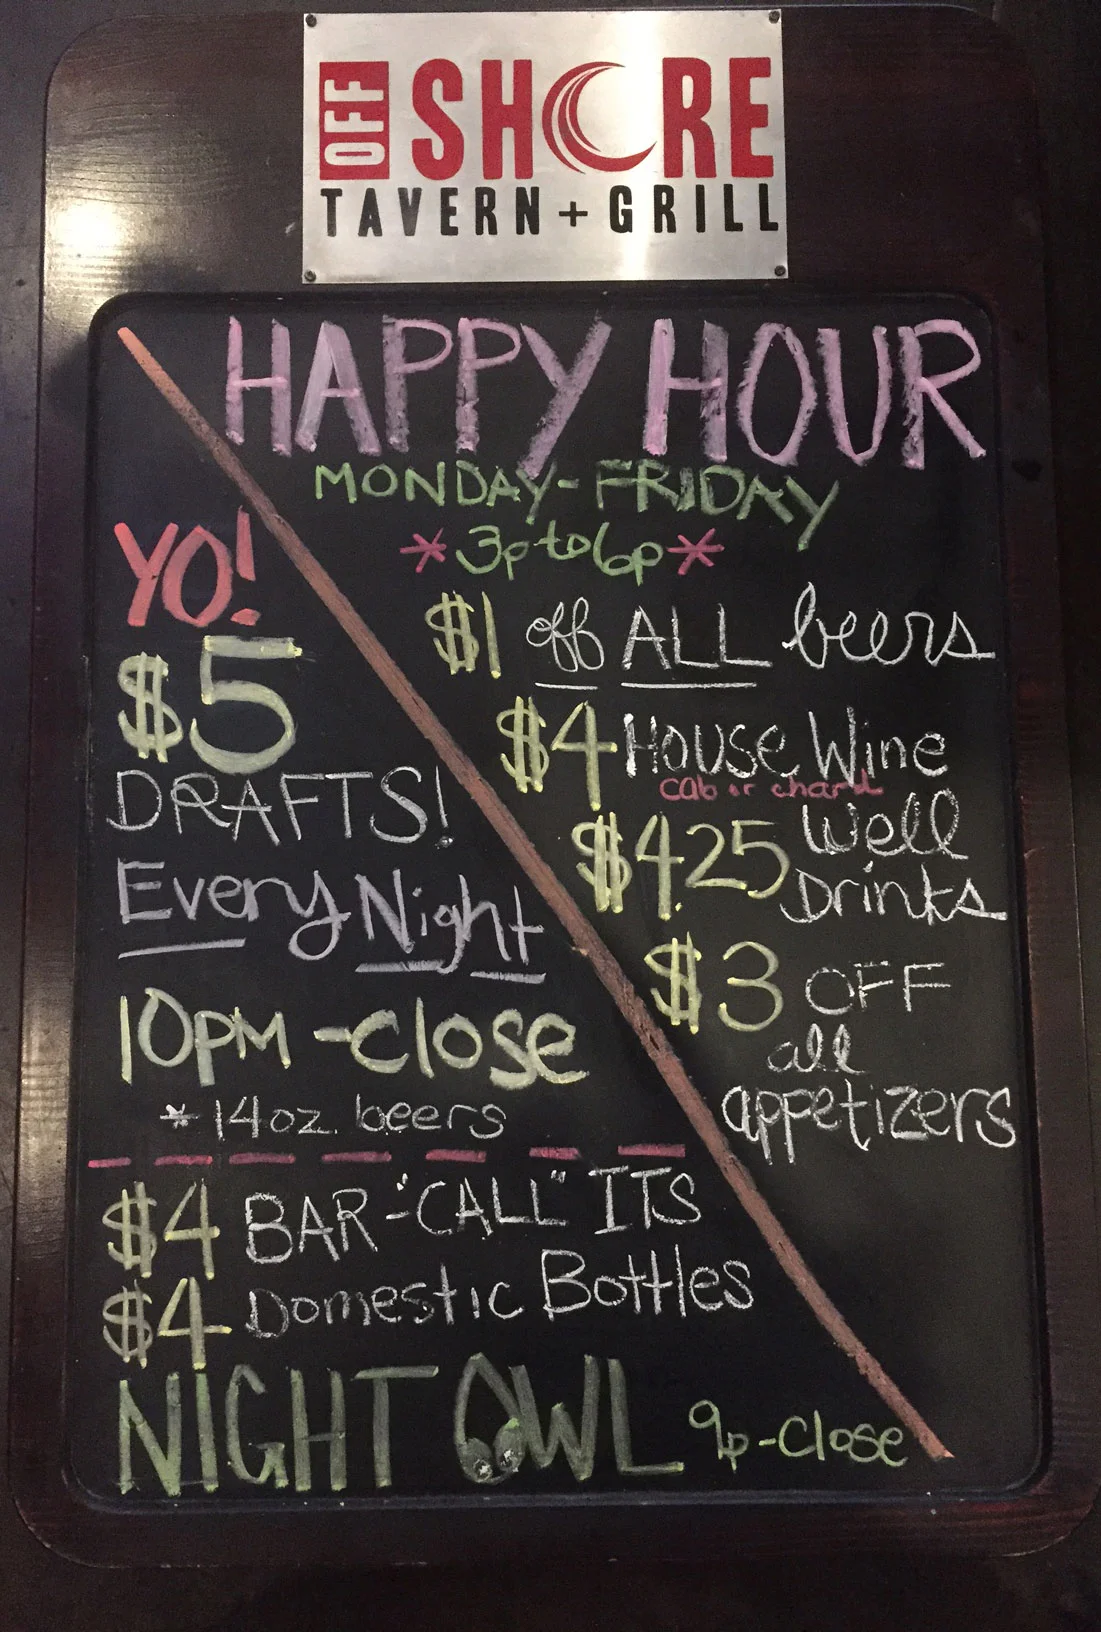 OFF SHORE
TAVERN + GRILL
HAPPY HOUR
MONDAY-FRIDAY
*3p to 6p*
$1 off ALL beers
$4 House Wine
cab or chard
$4.25 Well
Drinks
$3 OFF
all
appetizers
YO!
$5
DRAFTS!
Every Night
10PM-close
*14oz. beers
$4 BAR-"CALL" ITS
$4 Domestic Bottles
NIGHT OWL 9p-close